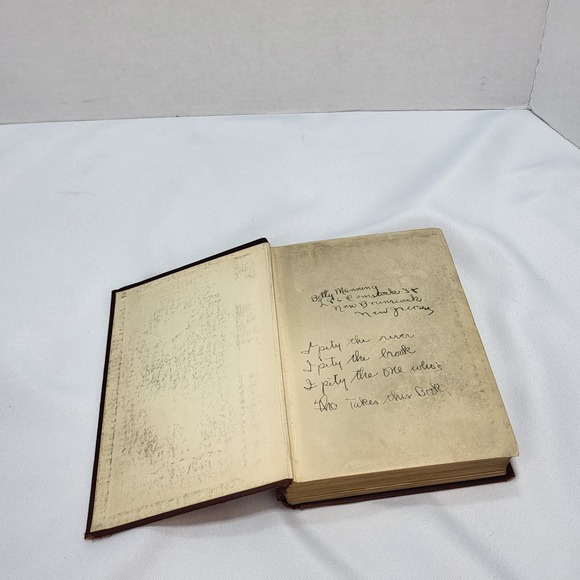 Betty Manning
Comstock St
New Brunswick
New Jersey
I pity the river
I pity the brook
I pity the one who's
Takes this Book